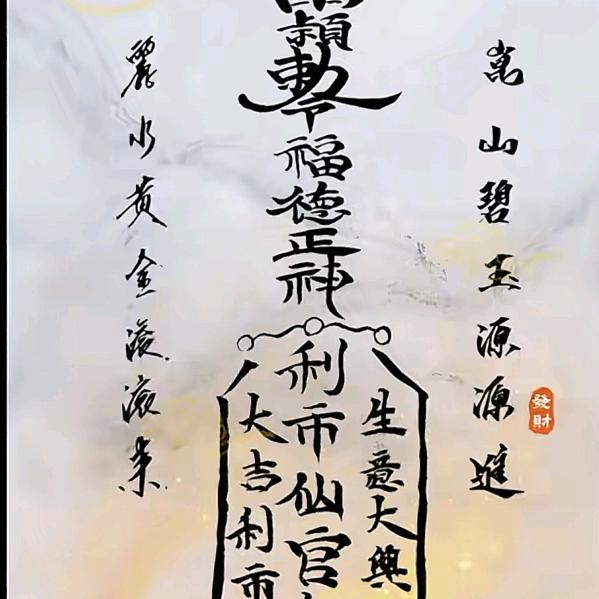 崑山碧玉源源進
發財
生意大興
勅令福德正神
利市仙官
大吉利市
麗水黃金滾滾來